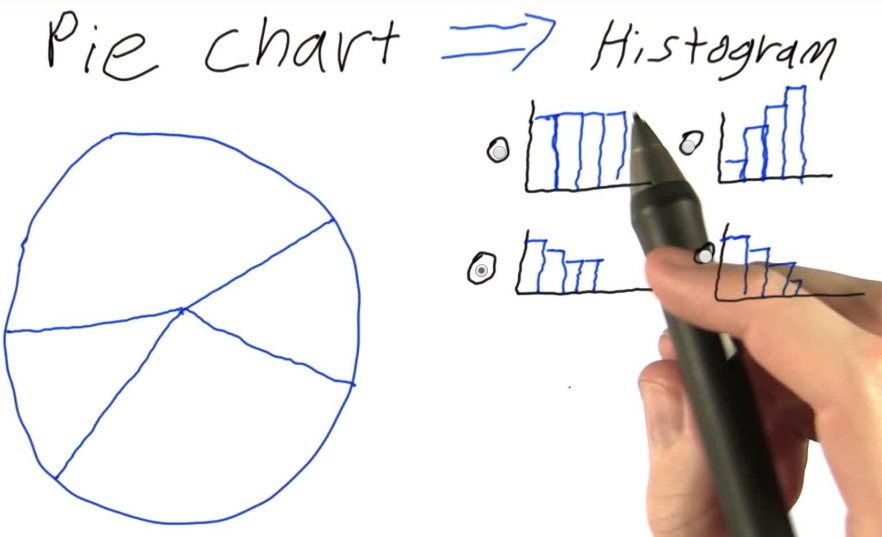 Pie chart ⇒ Histogram